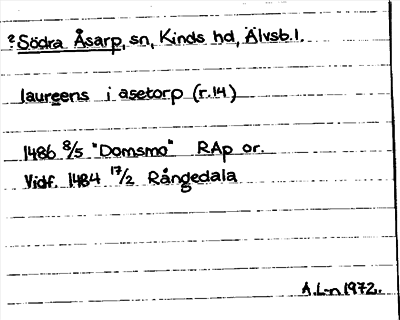 ? Södra Åsarp, sn, Kinds hd, Älvsb. l.
laureens i asetorp (r.14)
1486 8/5 "Domsmo" RAp or.
Vidf. 1484 17/2 Rångedala
A.L-n 1972.